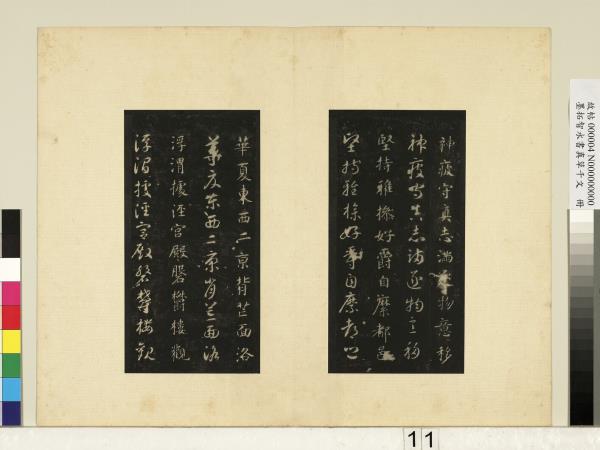 神疲守真志滿逐物意移
神疲守真志滿逐物意移
堅持雅操好爵自縻都邑
堅持雅操好爵自縻都邑
華夏東西二京背芒面洛
華夏東西二京背芒面洛
浮渭據涇宮殿磐鬱樓觀
浮渭據涇宮殿磐鬱樓觀
故帖 000004 N000000000
墨拓智永書真草千文 冊
11